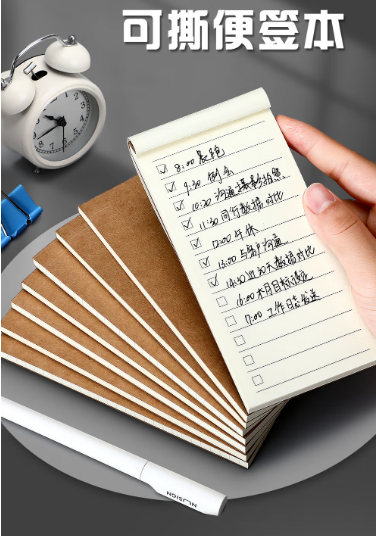 可撕便签本
8:00 晨跑
9:30 例会
10:30 沟通摄影拍照
11:30 同行数据对比
12:00 午休
13:00 与客户沟通
14:30 近30天数据对比
16:00 本月目标确定
17:00 工作日志发送
NUSIGN